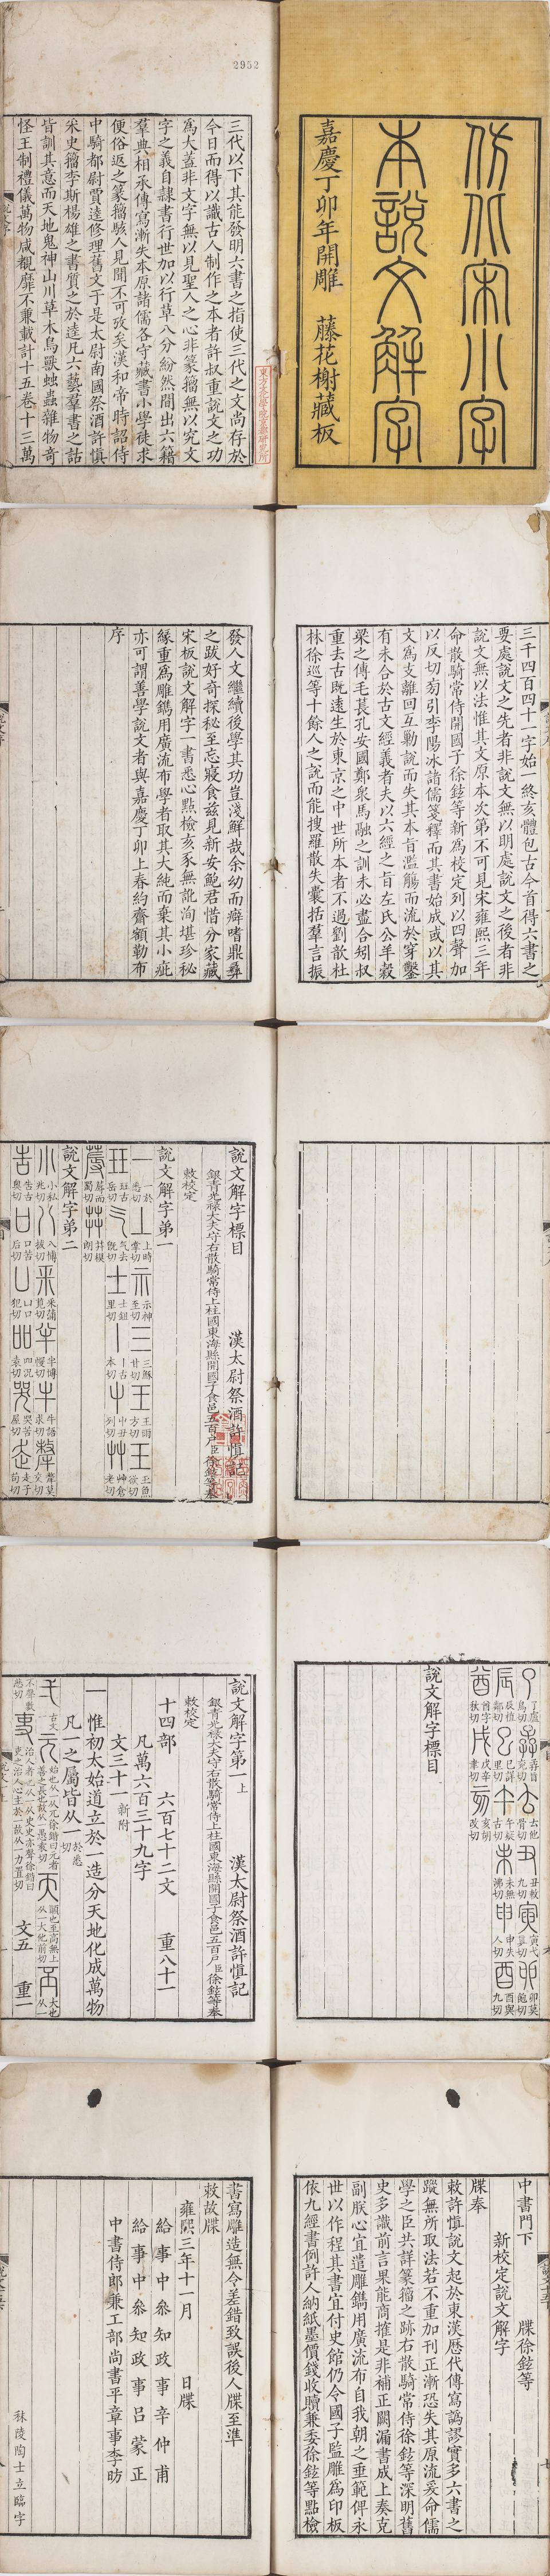 仿北宋小字
本說文解字
嘉慶丁卯年開雕 藤花榭藏板
2952
三代以下其能發明六書之指使三代之文尚存於
今日而得以識古人制作之本者許叔重說文之功
為大蓋非文字無以見聖人之心非篆籀無以究文
字之義自隸書行世加以行草八分紛然間出六籍
羣典相承傳寫漸失本原諸儒各守藏書小學徒求
便俗返之篆籀駭人見聞不可攷矣漢和帝時詔侍
中騎都尉賈逵修理舊文于是太尉南閣祭酒許慎
采史籀李斯楊雄之書質之於逵凡六藝羣書之詁
皆訓其意而天地鬼神山川草木鳥獸蚰蟲雜物奇
怪王制禮儀萬物咸覩靡不兼載計十五卷十三萬
三千四百四十一字始一終亥體包古今首得六書之
要處說文之先者非說文無以明處說文之後者非
說文無以法惟其文原本次第不可見宋雍熙三年
命散騎常侍開國子徐鉉等新為校定列以四聲加
以反切旁引李陽冰諸儒箋釋而其書始成或以其
文為支離回互勦說而失其本旨濫觴而流於穿鑿
有未合於古文經義者夫以六經之旨左氏公羊穀
梁之傳毛萇孔安國鄭衆馬融之訓未必盡合矧叔
重去古既遠生於東京之中世所本者不過劉歆杜
林徐巡等十餘人之說而能搜羅散失囊括羣言振
發人文繼續後學其功豈淺鮮哉余幼而癖嗜鼎彝
之跋好奇探秘至忘寢食兹見新安鮑君惜分家藏
宋板說文解字一書悉心點檢亥豕無訛洵堪珍秘
緣重為雕鐫用廣流布學者取其大純而棄其小疵
亦可謂善學說文者與嘉慶丁卯上春約齋額勒布
序
說文解字標目 漢太尉祭酒許慎記
銀青光祿大夫守右散騎常侍上柱國東海縣開國子食邑五百戶臣徐鉉等奉
敕校定
說文解字第一
一於悉切 上時掌切 示神至切 三穌甘切 王雨方切 玉魚欲切
玨古岳切 气去旣切 士鉏里切 丨古本切 屮丑列切 艸倉老切
蓐而蜀切 茻模朗切
說文解字第二
小私兆切 八博拔切 釆蒲莧切 半博慢切 牛語求切 犛莫交切
告古奧切 口苦后切 凵口犯切 吅況袁切 哭苦屋切 走子苟切
了盧鳥切 孨旨兖切 𠫓他骨切 丑敕九切 寅弋真切 卯莫飽切
辰植鄰切 巳詳里切 午疑古切 未無沸切 申失人切 酉與九切
酋字秋切 戌辛聿切 亥胡改切
說文解字標目
說文解字第一上 漢太尉祭酒許慎記
銀青光祿大夫守右散騎常侍上柱國東海縣開國子食邑五百戶臣徐鉉等奉
敕校定
十四部 六百七十二文 重八十一
凡萬六百三十九字
文三十一新附
一 惟初太始道立於一造分天地化成萬物
凡一之屬皆从一於悉切
弌古文一 元始也从一从兀徐鍇曰元者善之長也故从一愚袁切 天顚也至高無上从一大他前切 丕大也从一
不聲敷悲切 吏治人者也从一从史史亦聲徐鍇曰吏之治人心主於一故从一力置切 文五 重一
中書門下 牒徐鉉等
新校定說文解字
牒奉
敕許慎說文起於東漢歷代傳寫譌謬實多六書之
蹤無所取法若不重加刊正漸恐失其原流爰命儒
學之臣共詳篆籀之跡右散騎常侍徐鉉等深明舊
史多識前言果能商搉是非補正闕漏書成上奏克
副朕心宜遣雕鐫用廣流布自我朝之垂範俾永
世以作程其書宜付史館仍令國子監雕為印板
依九經書例許人納紙墨價錢收贖兼委徐鉉等點檢
書寫雕造無令差錯致誤後人牒至準
敕故牒
雍熙三年十一月 日牒
給事中參知政事辛仲甫
給事中參知政事呂蒙正
中書侍郎兼工部尚書平章事李昉
秣陵陶士立臨字